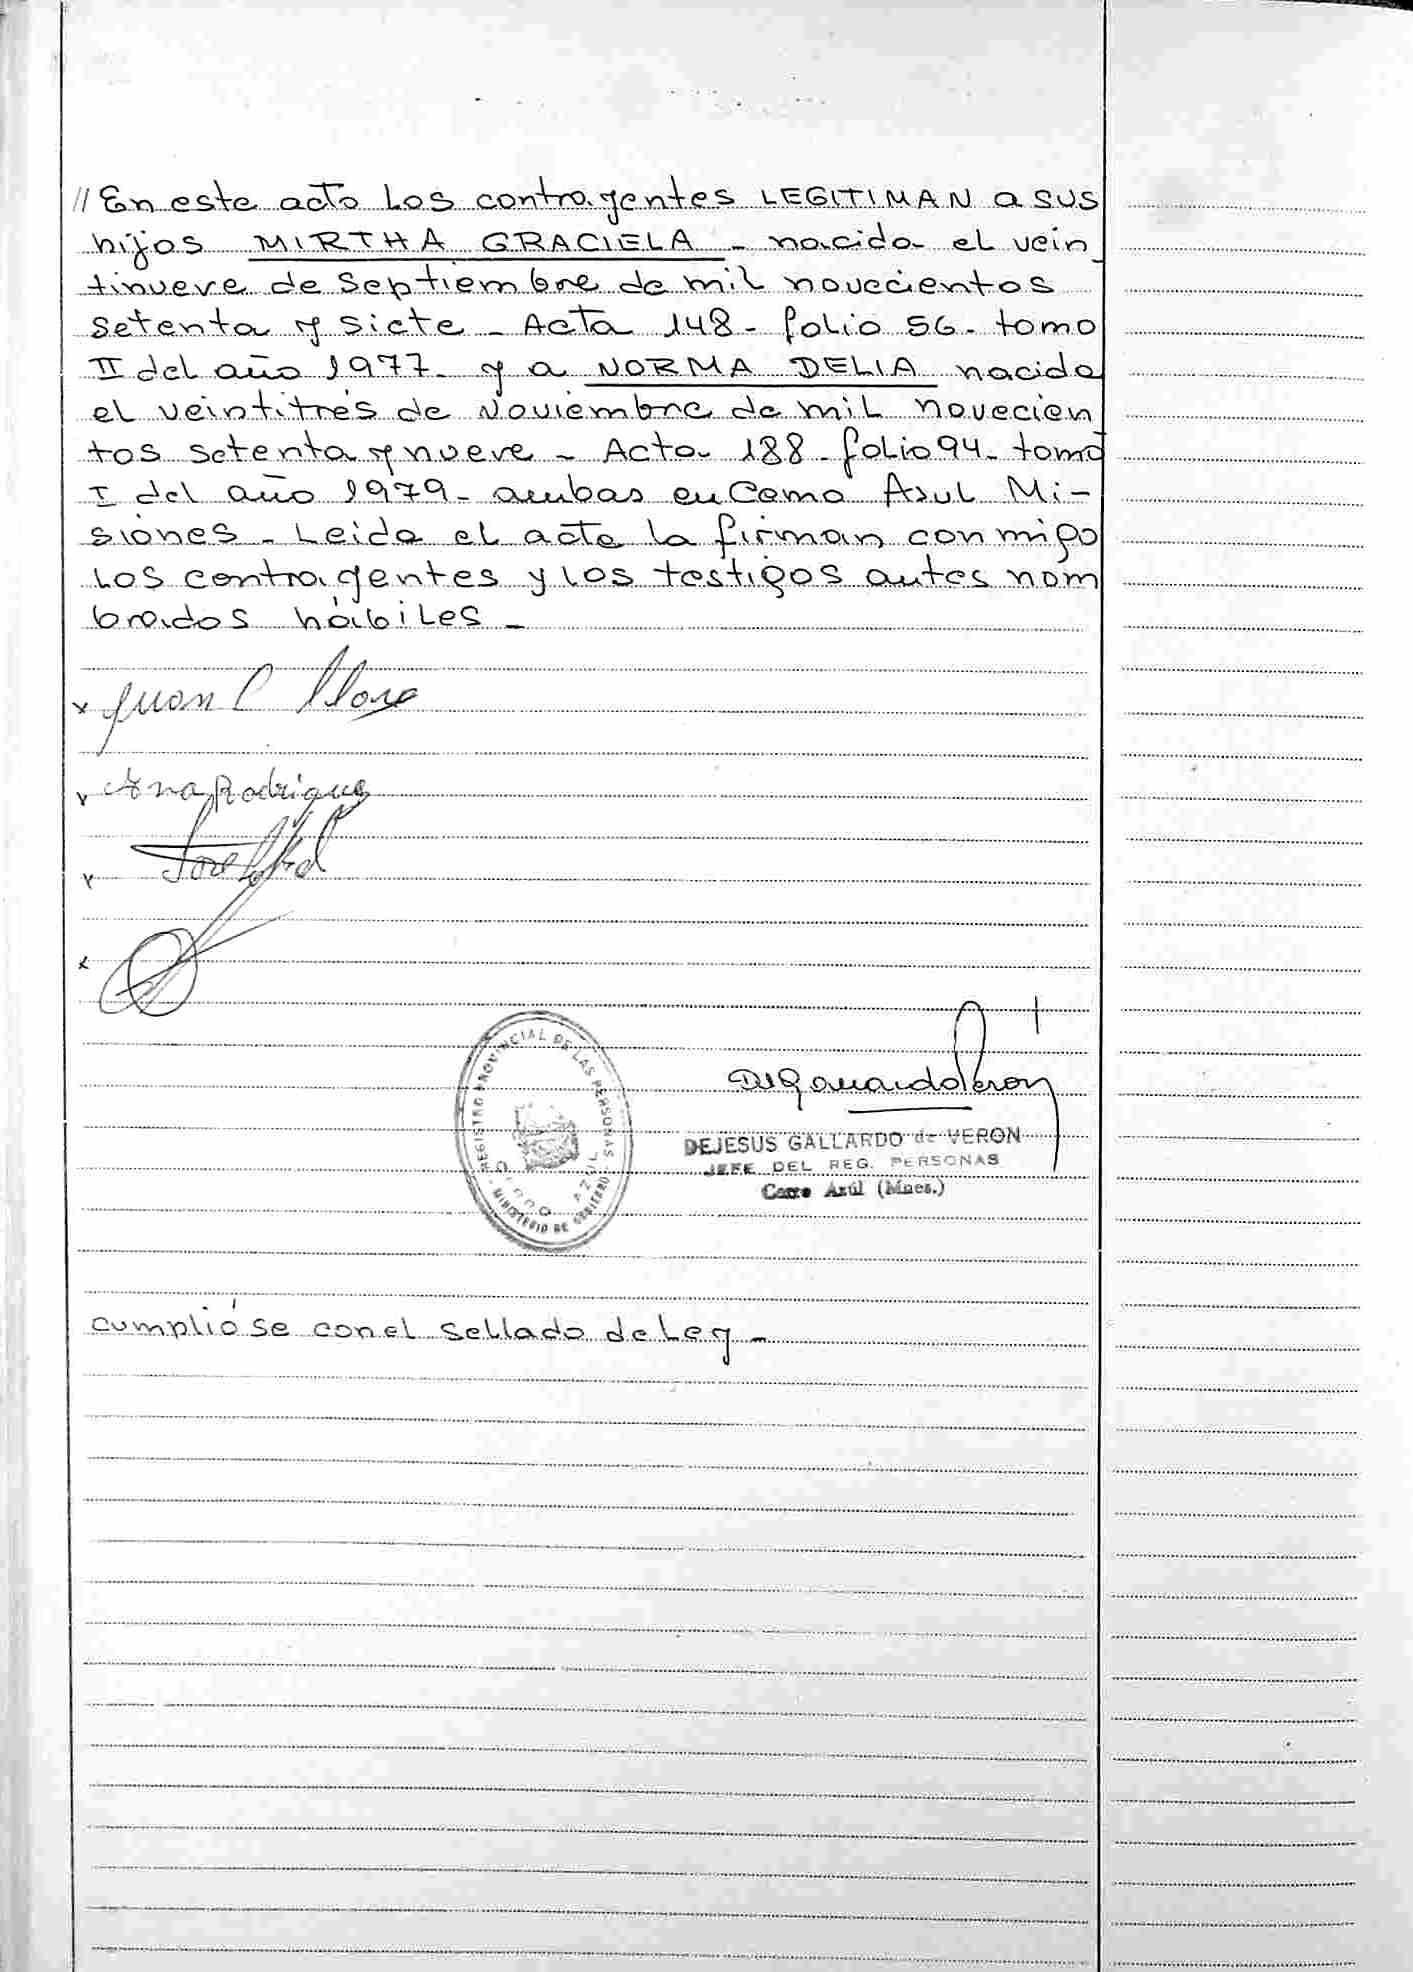 // En este acto Los contrayentes LEGITIMAN a sus
hijos MIRTHA GRACIELA - nacida el vein
tinueve de Septiembre de mil novecientos
setenta y siete - Acta 148 - folio 56 - tomo
II del año 1977 - y a NORMA DELIA nacida
el veintitrés de Noviembre de mil novecien
tos setenta y nueve - Acta 188 - folio 94 - tomo
I del año 1979 - ambas en Cerro Asul Mi-
siones - Leida el acta la firman conmigo
Los contrayentes y los testigos antes nom
brados hábiles -
x Juan C
x Ana Rodriguez
x Jose
x
REGISTRO PROVINCIAL DE LAS PERSONAS
CERRO AZUL
MINISTERIO DE GOBIERNO
DEJESUS GALLARDO de VERON
JEFE DEL REG. PERSONAS
Cerro Azúl (Mnes.)
cumplióse con el sellado de Ley -